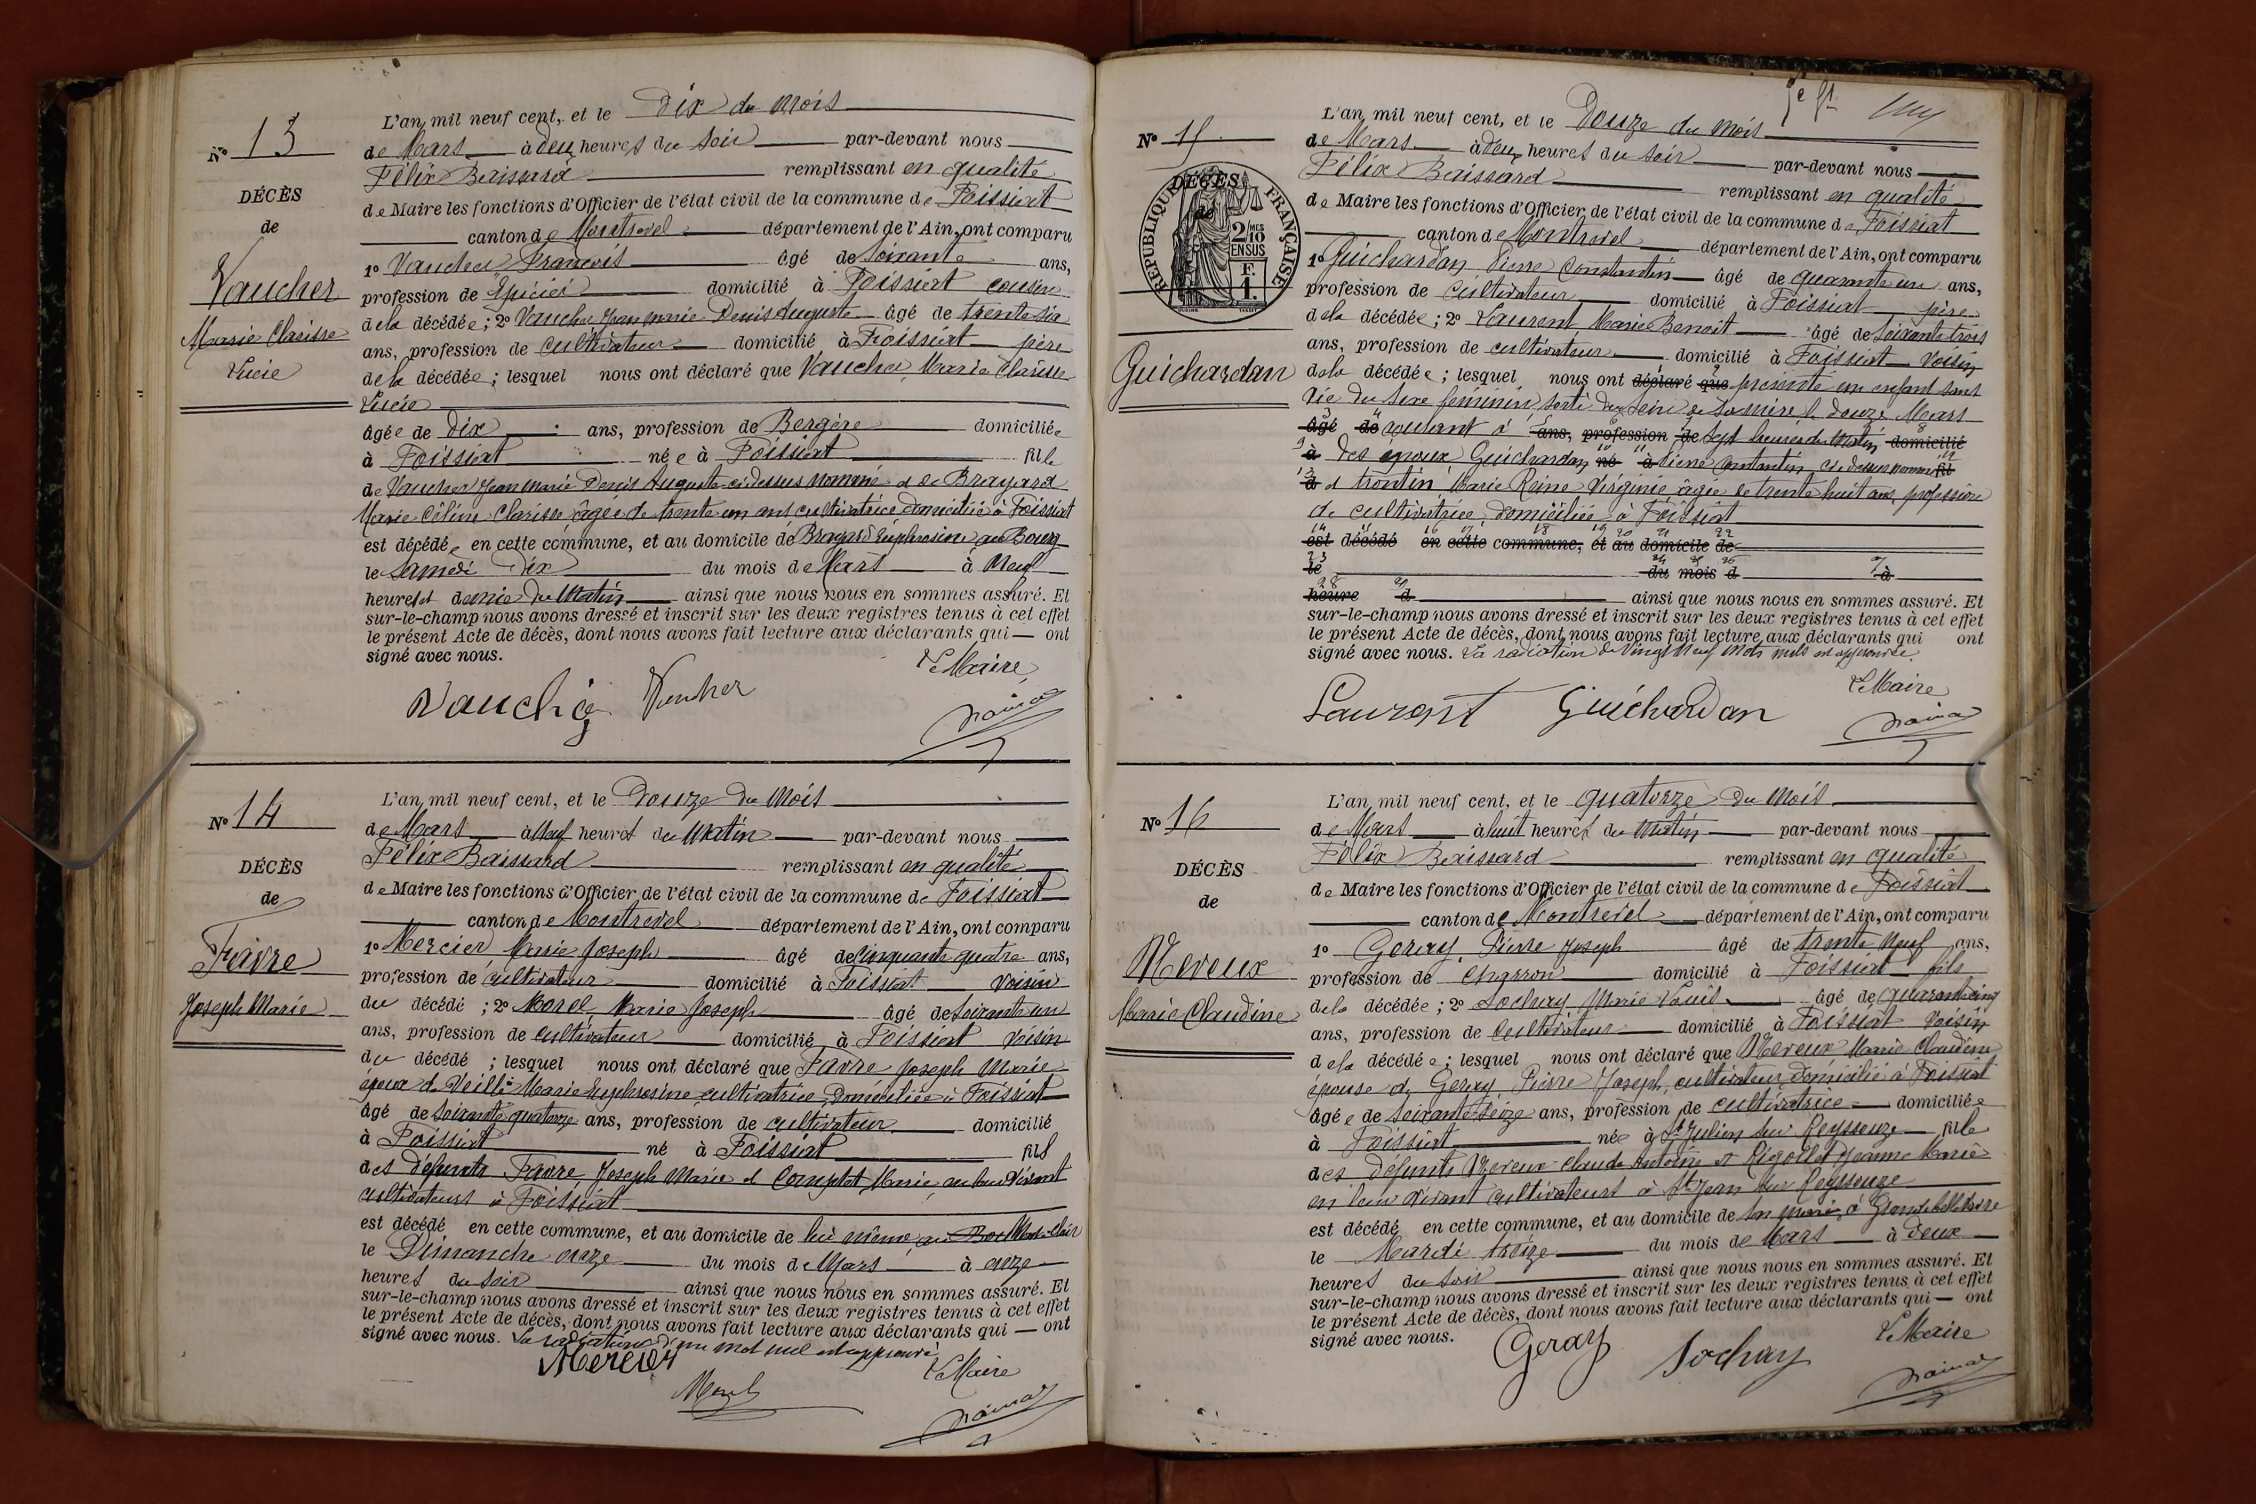 N° 13
DÉCÈS
de
Vaucher
Marie Clarisse
Lucie
L'an mil neuf cent, et le Dix du mois
de Mars à deux heures du soir par-devant nous
Félix Baissard remplissant en qualité
de Maire les fonctions d'Officier de l'état civil de la commune de Foissiat
canton de Montrevel département de l'Ain, ont comparu
1° Vaucher François âgé de soixante ans,
profession de Épicier domicilié à Foissiat cousin
de la décédée; 2° Vaucher Jean Marie Denis Auguste âgé de trente six
ans, profession de cultivateur domicilié à Foissiat père
de la décédée; lesquel nous ont déclaré que Vaucher Marie Clarisse
Lucie
âgée de dix ans, profession de Bergère domiciliée
à Foissiat née à Foissiat fille
de Vaucher Jean Marie Denis Auguste ci-dessus nommé et de Brayard
Marie Céline Clarisse âgée de trente un ans cultivatrice domiciliée à Foissiat
est décédée en cette commune, et au domicile de Brayard Euphrosine au Bourg
le Samedi Dix du mois de Mars à Neuf
heures et demie du Matin ainsi que nous nous en sommes assuré. Et
sur-le-champ nous avons dressé et inscrit sur les deux registres tenus à cet effet
le présent Acte de décès, dont nous avons fait lecture aux déclarants qui ont
signé avec nous.
Le Maire
Vaucher Vaucher
N° 14
DÉCÈS
de
Favre
Joseph Marie
L'an mil neuf cent, et le Douze du mois
de Mars à Neuf heures du Matin par-devant nous
Félix Baissard remplissant en qualité
de Maire les fonctions d'Officier de l'état civil de la commune de Foissiat
canton de Montrevel département de l'Ain, ont comparu
1° Mercier Marie Joseph âgé de cinquante quatre ans,
profession de cultivateur domicilié à Foissiat voisin
du décédé; 2° Morel Marie Joseph âgé de soixante un
ans, profession de cultivateur domicilié à Foissiat voisin
du décédé; lesquel nous ont déclaré que Favre Joseph Marie
époux de Veille Marie Euphrosine cultivatrice domiciliée à Foissiat
âgé de soixante quatorze ans, profession de cultivateur domicilié
à Foissiat né à Foissiat fils
des défunts Favre Joseph Marie et Comptet Marie, au leur vivant
cultivateurs à Foissiat
est décédé en cette commune, et au domicile de lui même au
le Dimanche onze du mois de Mars à onze
heures du soir ainsi que nous nous en sommes assuré. Et
sur-le-champ nous avons dressé et inscrit sur les deux registres tenus à cet effet
le présent Acte de décès, dont nous avons fait lecture aux déclarants qui ont
signé avec nous. La radiation d'un mot nul est approuvé
Mercier
Le Maire
Morel
N° 15
DÉCÈS
de
RÉPUBLIQUE FRANÇAISE
2/10 EN SUS
F. 1.
Guichardan
L'an mil neuf cent, et le Douze du mois
de Mars à deux heures du soir par-devant nous
Félix Baissard remplissant en qualité
de Maire les fonctions d'Officier de l'état civil de la commune de Foissiat
canton de Montrevel département de l'Ain, ont comparu
1° Guichardan Pierre Constantin âgé de quarante un ans,
profession de cultivateur domicilié à Foissiat père
de la décédée; 2° Laurent Marie Benoit âgé de soixante trois
ans, profession de cultivateur domicilié à Foissiat voisin
de la décédée; lesquel nous ont déclaré que présenté un enfant sans
vie du sexe féminin sorti du sein de sa mère le douze Mars
âgé de courant à ans, profession de sept heures du Matin domicilié
à des époux Guichardan né à Pierre Constantin ci-dessus nommé fil
d et Trontin Marie Reine Virginie âgée de trente huit ans, profession
de cultivatrice, domiciliée à Foissiat
est décédé en cette commune, et au domicile de
le du mois d à
heure d ainsi que nous nous en sommes assuré. Et
sur-le-champ nous avons dressé et inscrit sur les deux registres tenus à cet effet
le présent Acte de décès, dont nous avons fait lecture aux déclarants qui ont
signé avec nous. La radiation de vingt neuf mots nuls est approuvée.
Le Maire
Laurent Guichardan
N° 16
DÉCÈS
de
Mereux
Marie Claudine
L'an mil neuf cent, et le quatorze du mois
de Mars à huit heures du Matin par-devant nous
Félix Baissard remplissant en qualité
de Maire les fonctions d'Officier de l'état civil de la commune de Foissiat
canton de Montrevel département de l'Ain, ont comparu
1° Geray Pierre Joseph âgé de trente neuf ans,
profession de charron domicilié à Foissiat fils
de la décédée; 2° Sochay Marie Louis âgé de quarante cinq
ans, profession de cultivateur domicilié à Foissiat voisin
de la décédée; lesquel nous ont déclaré que Mereux Marie Claudine
épouse de Geray Pierre Joseph, cultivateur domicilié à Foissiat
âgée de soixante seize ans, profession de cultivatrice domiciliée
à Foissiat née à St Julien sur Reyssouze fille
des défunts Mereux Claude Antoine et Rigollet Jeanne Marie
en leur vivant cultivateurs à St Jean sur Reyssouze
est décédé en cette commune, et au domicile de son mari à
le Mardi treize du mois de Mars à deux
heures du soir ainsi que nous nous en sommes assuré. Et
sur-le-champ nous avons dressé et inscrit sur les deux registres tenus à cet effet
le présent Acte de décès, dont nous avons fait lecture aux déclarants qui ont
signé avec nous.
Le Maire
Geray Sochay